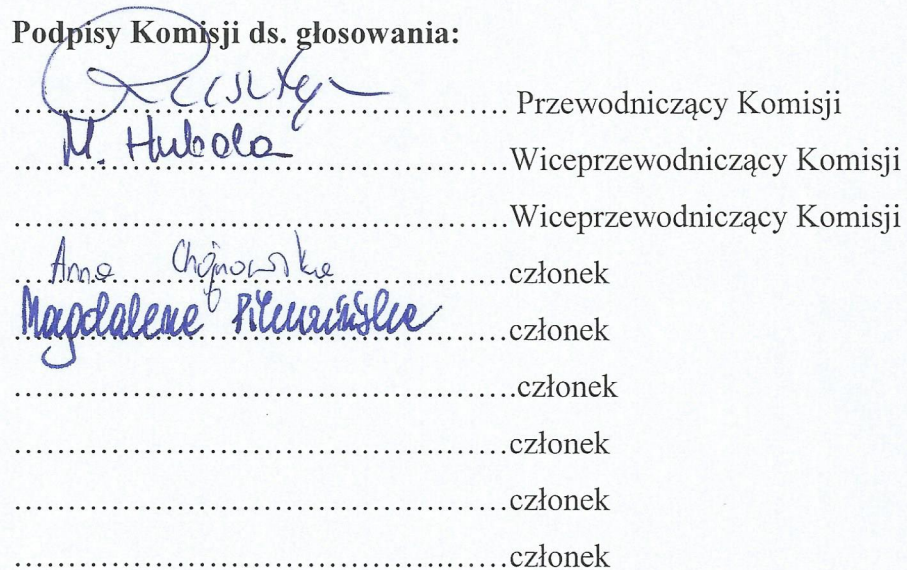 Podpisy Komisji ds. głosowania:
…………………………………………… Przewodniczący Komisji
M. Hubola ……………………………………………Wiceprzewodniczący Komisji
……………………………………………Wiceprzewodniczący Komisji
Anna Chojnowska ……………………………………………członek
Magdalena ……………………………………………członek
……………………………………………członek
……………………………………………członek
……………………………………………członek
……………………………………………członek